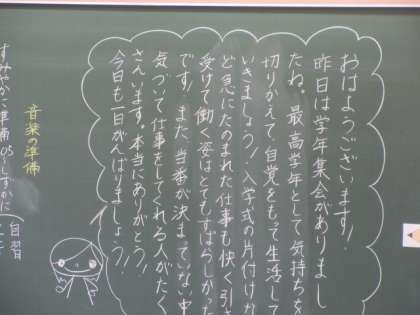 おはようございます!
昨日は学年集会がありまし
たね。最高学年として気持ちを
切りかえて、自覚をもって生活して
いきましょう!入学式の片付けな
ど急にたのまれた仕事も快く引き
受けて働く姿はとてもすばらしかった
です!また、当番が決まっていない中
気づいて仕事をしてくれる人がたく
さんいます。本当にありがとう!
今日も一日がんばりましょう!
音楽の準備
自習